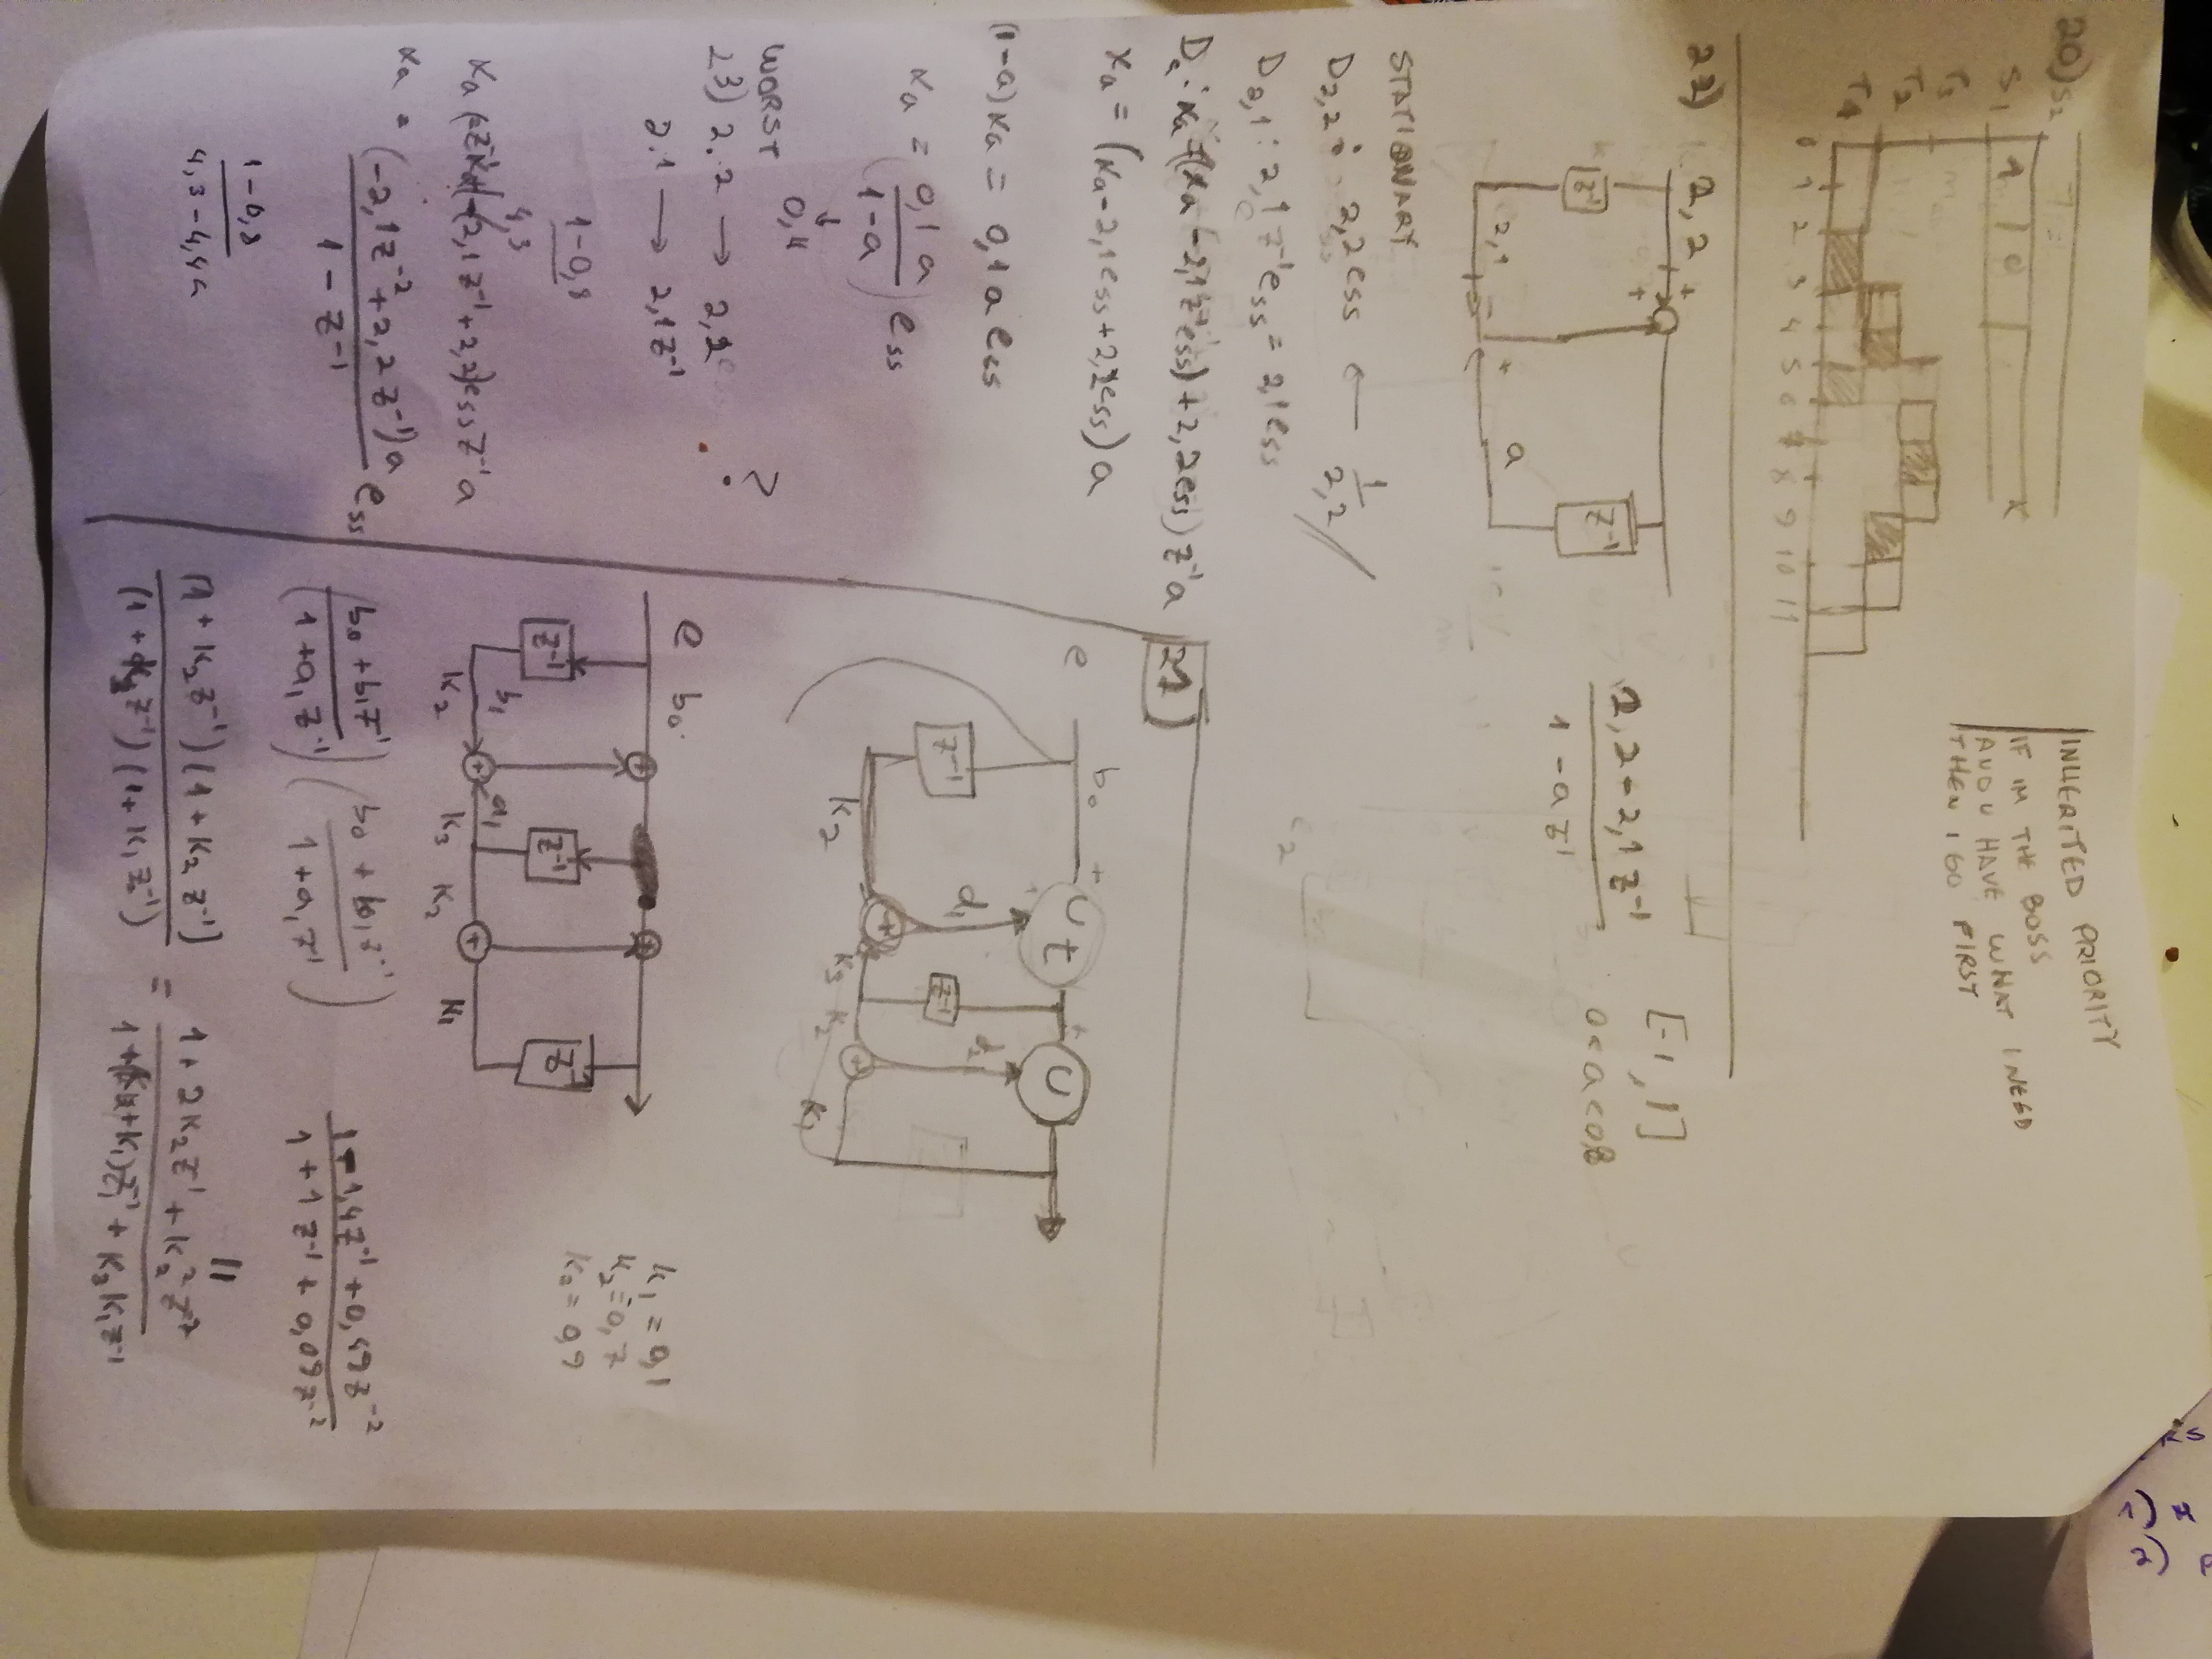 20) S2
S1 1 0
T3
T2
T1
0 1 2 3 4 5 6 7 8 9 10 11
INHERITED PRIORITY
IF IM THE BOSS
AND U HAVE WHAT I NEED
THEN I GO FIRST
22)
2,2 +
+
z⁻¹ z⁻¹
2,1 - + a
2,2 - 2,1 z⁻¹
1 - a z⁻¹
[-1, 1]
0 < a < 0,8
STATIONARY
D2,2 : 2,2 ess ← 1/2,2
D2,1 : 2,1 z⁻¹ ess = 2,1 ess
Da : xa = (xa - 2,1 z⁻¹ ess) + 2,2 ess) z⁻¹ a
xa = (xa - 2,1 ess + 2,2 ess) a
(1-a) xa = 0,1 a ess
xa = (0,1 a / 1-a) ess
↓
0,4
WORST
23) 2.2 → 2,2 ?
2.1 → 2,1 z⁻¹
1-0,8
4,3
(-2,1 z⁻¹ + 2,2) ess z⁻¹ a
xa = (-2,1 z⁻² + 2,2 z⁻¹) a / 1 - z⁻¹ ess
1-0,8
4,3 - 4,4 a
21)
e b0 + U t + U
z⁻¹ d1 z⁻¹ d2
K2 + K3 K2 + K1
e b0
+ +
z⁻¹ z⁻¹ z⁻¹
b1 + a1 +
K2 K3 K2 K1
k1 = 0,1
k2 = 0,7
= 0,9
(b0 + b1 z⁻¹ / 1 + a1 z⁻¹) (b0 + b1 z⁻¹ / 1 + a1 z⁻¹)
1 - 1,4 z⁻¹ + 0,49 z⁻²
1 + 1 z⁻¹ + 0,09 z⁻²
||
(1 + K2 z⁻¹)(1 + K2 z⁻¹) / (1 + K3 z⁻¹)(1 + K1 z⁻¹) = 1 + 2K2 z⁻¹ + K2² z⁻² / 1 + ( + K1) z⁻¹ + K3 K1 z⁻¹